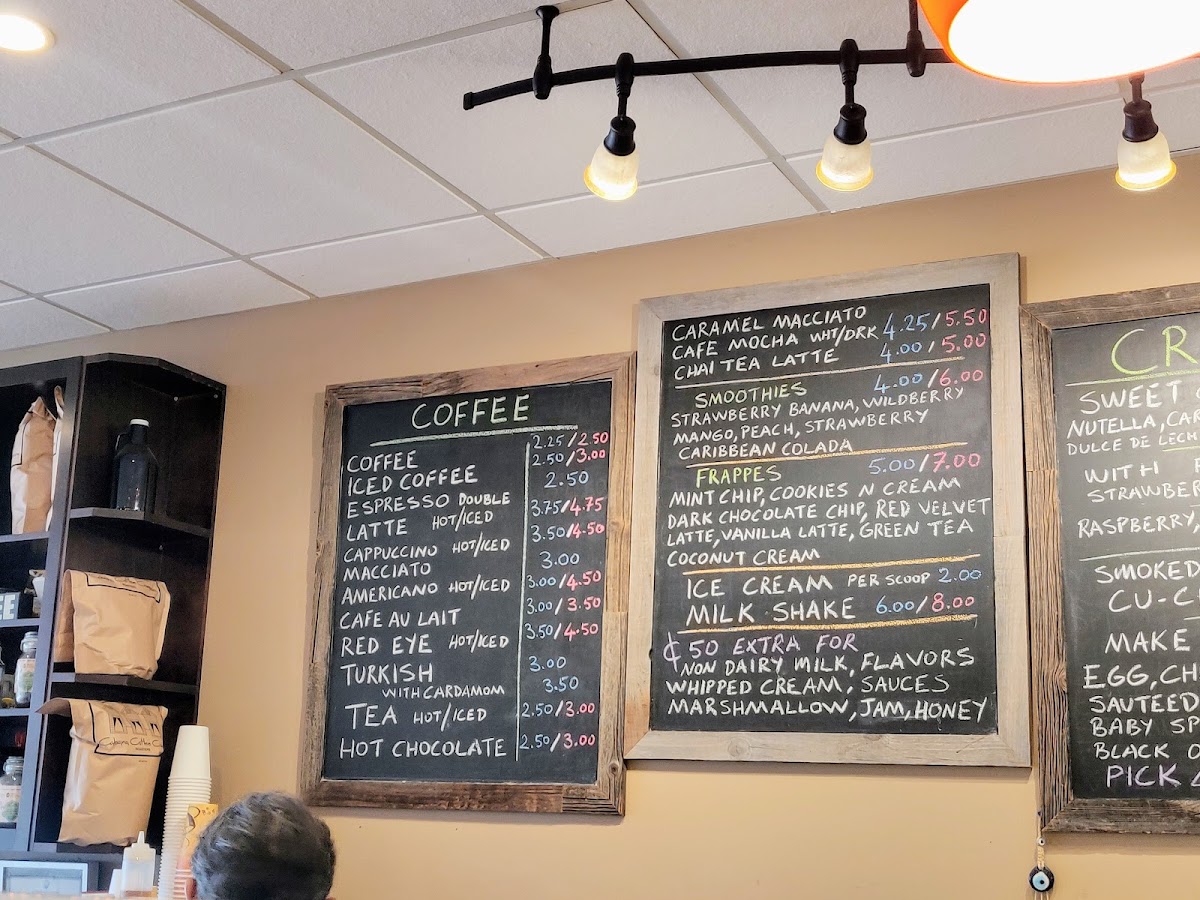 COFFEE
COFFEE 2.25/2.50
ICED COFFEE 2.50/3.00
ESPRESSO DOUBLE 2.50
LATTE HOT/ICED 3.75/4.75
CAPPUCCINO HOT/ICED 3.50/4.50
MACCIATO 3.00
AMERICANO HOT/ICED 3.00/4.50
CAFE AU LAIT 3.00/3.50
RED EYE HOT/ICED 3.50/4.50
TURKISH 3.00
WITH CARDAMOM 3.50
TEA HOT/ICED 2.50/3.00
HOT CHOCOLATE 2.50/3.00
CARAMEL MACCIATO
CAFE MOCHA WHT/DRK 4.25/5.50
CHAI TEA LATTE 4.00/5.00
SMOOTHIES 4.00/6.00
STRAWBERRY BANANA, WILDBERRY
MANGO, PEACH, STRAWBERRY
CARIBBEAN COLADA
FRAPPES 5.00/7.00
MINT CHIP, COOKIES N CREAM
DARK CHOCOLATE CHIP, RED VELVET
LATTE, VANILLA LATTE, GREEN TEA
COCONUT CREAM
ICE CREAM PER SCOOP 2.00
MILK SHAKE 6.00/8.00
¢50 EXTRA FOR
NON DAIRY MILK, FLAVORS
WHIPPED CREAM, SAUCES
MARSHMALLOW, JAM, HONEY
CR
SWEET
NUTELLA, CAR
DULCE DE LECH
WITH
STRAWBER
RASPBERRY
SMOKED
CU-C
MAKE
EGG, CH
SAUTEED
BABY SP
BLACK O
PICK